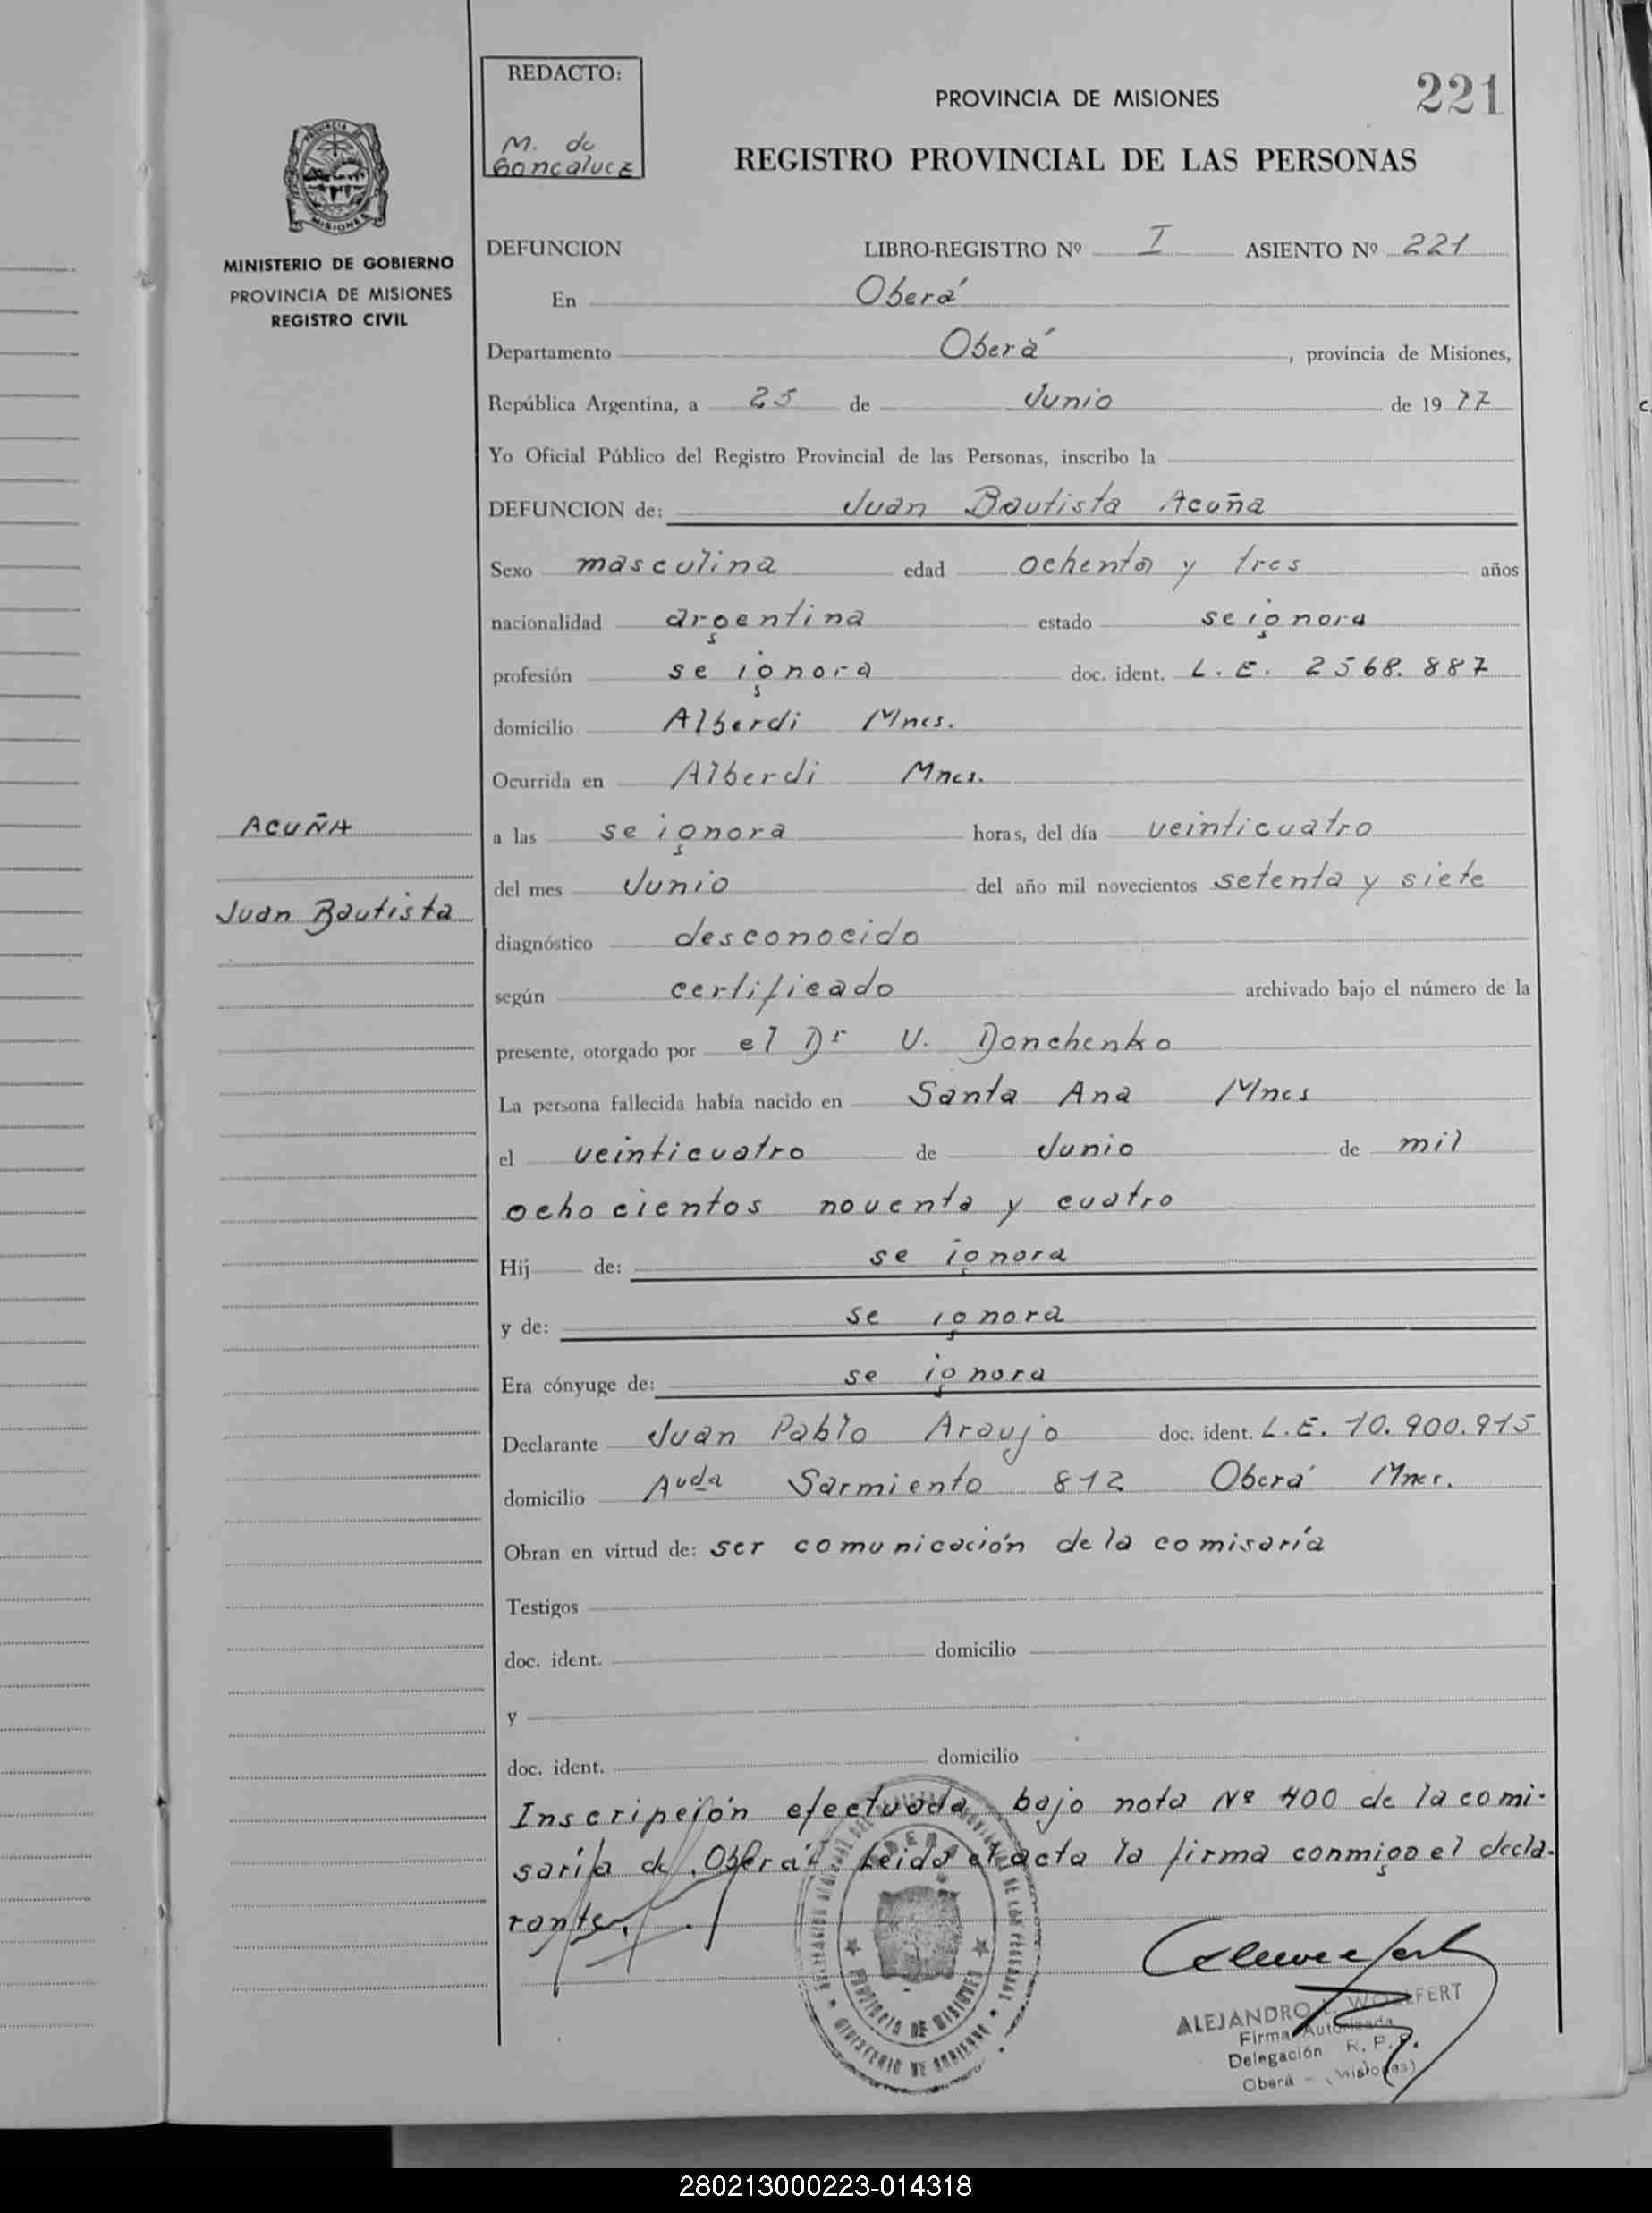 REDACTO:
M. do
Goncaluez
PROVINCIA DE MISIONES
221
REGISTRO PROVINCIAL DE LAS PERSONAS
MINISTERIO DE GOBIERNO
PROVINCIA DE MISIONES
REGISTRO CIVIL
DEFUNCION LIBRO-REGISTRO Nº I ASIENTO Nº 221
En Oberá
Departamento Oberá, provincia de Misiones,
República Argentina, a 25 de Junio de 1977
Yo Oficial Público del Registro Provincial de las Personas, inscribo la
DEFUNCION de: Juan Bautista Acuña
Sexo masculina edad ochenta y tres años
nacionalidad argentina estado se ignora
profesión se ignora doc. ident. L.E. 2568.887
domicilio Alberdi Mnes.
Ocurrida en Alberdi Mnes.
ACUÑA
a las se ignora horas, del día veinticuatro
del mes Junio del año mil novecientos setenta y siete
Juan Bautista
diagnóstico desconocido
según certificado archivado bajo el número de la
presente, otorgado por el Dr U. Donchenko
La persona fallecida había nacido en Santa Ana Mnes
el veinticuatro de Junio de mil
ochocientos noventa y cuatro
Hij de: se ignora
y de: se ignora
Era cónyuge de: se ignora
Declarante Juan Pablo Araujo doc. ident. L.E. 10.900.915
domicilio Auda Sarmiento 812 Oberá Mnes.
Obran en virtud de: ser comunicación de la comisaría
Testigos
doc. ident. domicilio
y
doc. ident. domicilio
Inscripción efectuada bajo nota Nº 400 de la comi-
saría de Oberá. Leida el acta la firma conmigo el decla-
rante.
PROVINCIA DE MISIONES
MINISTERIO DE GOBIERNO
ALEJANDRO WOLFERT
Firma Autorizada
Delegación R. P. P.
Oberá - (Misiones)
280213000223-014318